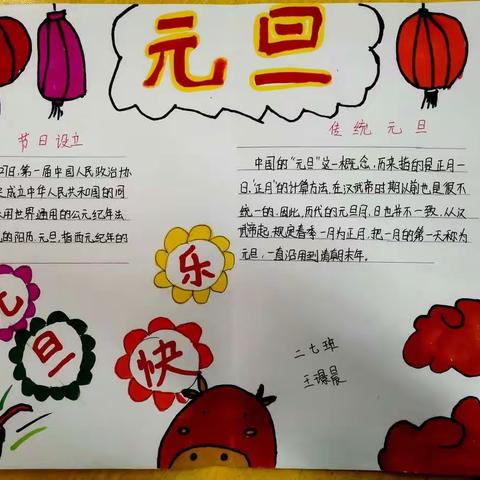 元旦
节日设立
27日,第一届中国人民政治协
定成立中华人民共和国的同
采用世界通用的公元纪年法
的阳历,元旦,指西元纪年的
传统元旦
中国的“元旦”这一概念,历来指的是正月一
日,“正月”的计算方法,在汉武帝时期以前也是很不
统一的,因此,历代的元旦月、日也并不一致,从汉
武帝起,规定春季一月为正月,把一月的第一天称为
元旦,一直沿用到清朝末年。
乐
元
旦
快
二七班